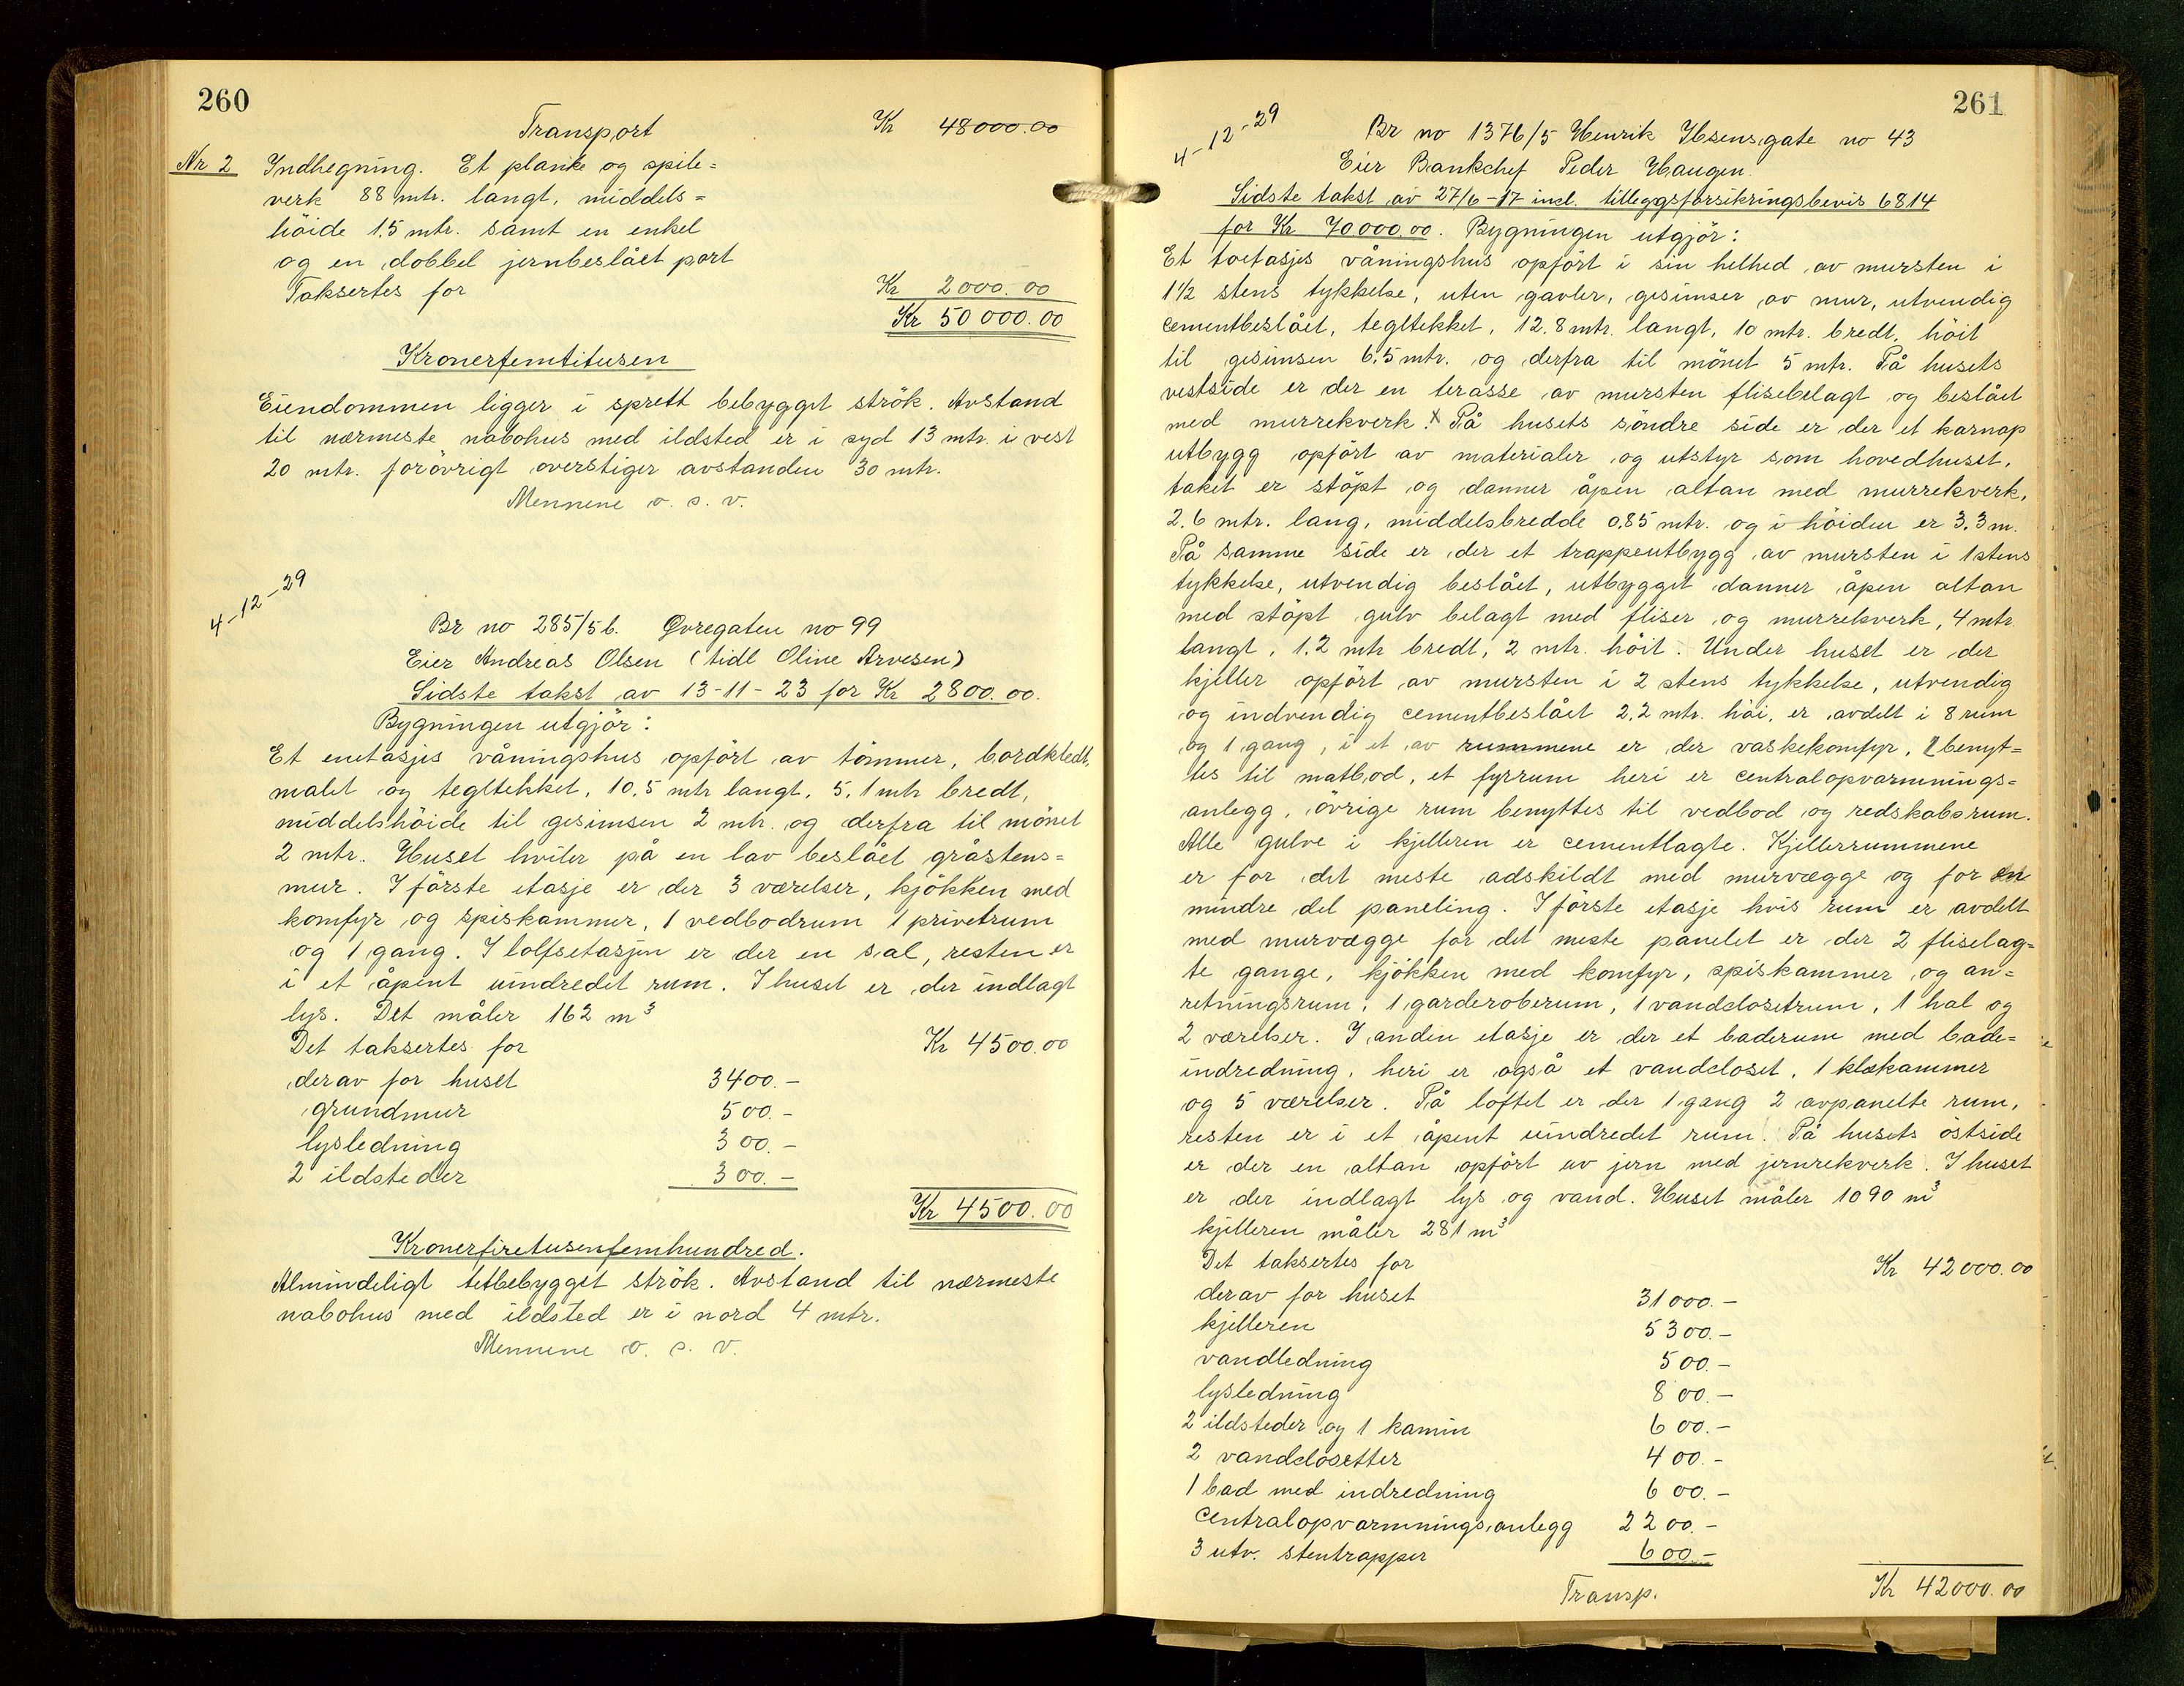 260
Transport Kr 48000.00
Nr 2 Indhegning. Et planke og spile=
verk 88 mtr. langt, middels=
höide 1.5 mtr. samt en enkel
og en dobbel jernbeslået port
Taksertes for Kr 2000.00
Kr 50000.00
Kronerfemtitusen
Eiendommen ligger i sprett bebygget strök. Avstand
til nærmeste nabohus med ildsted er i syd 13 mtr. i vest
20 mtr. forövrigt overstiger avstanden 30 mtr.
Mennene o. s. v.
4-12-29
Br no 285/5b. Øvregaten no 99
Eier Andreas Olsen (tidl Oline Arvesen)
Sidste takst av 13-11-23 for Kr 2800.00.
Bygningen utgjör:
Et enetasjes våningshus opfört av tömmer, bordkledt,
malet og tegltekket, 10,5 mtr langt, 5,1 mtr bredt,
middelshöide til gesimsen 2 mtr. og derfra til mönet
2 mtr. Huset hviler på en lav beslået gråstens=
mur. I förste etasje er der 3 værelser, kjökken med
komfyr og spiskammer, 1 vedbodrum 1 privetrum
og 1 gang. I loftsetasjen er der en sal, resten er
i et åpent uindredet rum. I huset er der indlagt
lys. Det måler 162 m³
Det taksertes for Kr 4500.00
derav for huset 3400.-
grundmur 500.-
lysledning 300.-
2 ildsteder 300.-
Kr 4500.00
Kronerfiretusenfemhundred.
Almindeligt tetbebygget strök. Avstand til nærmeste
nabohus med ildsted er i nord 4 mtr.
Mennene o. s. v.
261
4-12-29
Br no 1376/5 Henrik Ibsensgate no 43
Eier Bankchef Peder Haugen.
Sidste takst av 27/6-17 incl. tilleggsforsikringsbevis 6814
for Kr 70000.00. Bygningen utgjör:
Et toetasjes våningshus opfört i sin helhed av mursten i
1 1/2 stens tykkelse, uten gavler, gesimser av mur, utvendig
cementbeslået, tegltekket, 12,8 mtr. langt, 10 mtr. bredt, höit
til gesimsen 6,5 mtr. og derfra til mönet 5 mtr. På husets
vestside er der en terasse av mursten flisebelagt og beslået
med murrekverk. x På husets söndre side er der et karnap
utbygg opfört av materialer og utstyr som hovedhuset,
taket er stöpt og danner åpen altan med murrekverk,
2.6 mtr. lang, middelsbredde 0.85 mtr. og i höiden er 3.3 m.
På samme side er der et trappeutbygg av mursten i 1 stens
tykkelse, utvendig beslået, utbygget danner åpen altan
med stöpt gulv belagt med fliser og murrekverk, 4 mtr.
langt, 1.2 mtr bredt, 2 mtr. höit. Under huset er der
kjeller opfört av mursten i 2 stens tykkelse, utvendig
og indvendig cementbeslået 2,2 mtr. höi, er avdelt i 8 rum
og 1 gang, i et av rummene er der vaskekomfyr, 1 benyt=
tes til matbod, et fyrrum heri er centralopvarmnings=
anlegg, övrige rum benyttes til vedbod og redskabsrum.
Alle gulve i kjelleren er cementlagte. Kjellerrummene
er for det meste adskildt med murvægge og for en
mindre del paneling. I förste etasje hvis rum er avdelt
med murvægge for det meste panelet er der 2 fliselag=
te gange, kjökken med komfyr, spiskammer og an=
retningsrum, 1 garderoberum, 1 vandclosetrum, 1 hal og
2 værelser. I anden etasje er der et baderum med bade=
indredning, heri er også et vandcloset, 1 klækammer
og 5 værelser. På loftet er der 1 gang 2 avpanelte rum,
resten er i et åpent uindredet rum. På husets östside
er der en altan opfört av jern med jernrekverk. I huset
er der indlagt lys og vand. Huset måler 1090 m³
kjelleren måler 281 m³
Det taksertes for Kr 42000.00
derav for huset 31000.-
kjelleren 5300.-
vandledning 500.-
lysledning 800.-
2 ildsteder og 1 kamin 600.-
2 vandclosetter 400.-
1 bad med indredning 600.-
Centralopvarmningsanlegg 2200.-
3 utv. stentrapper 600.-
Transp. Kr 42000.00